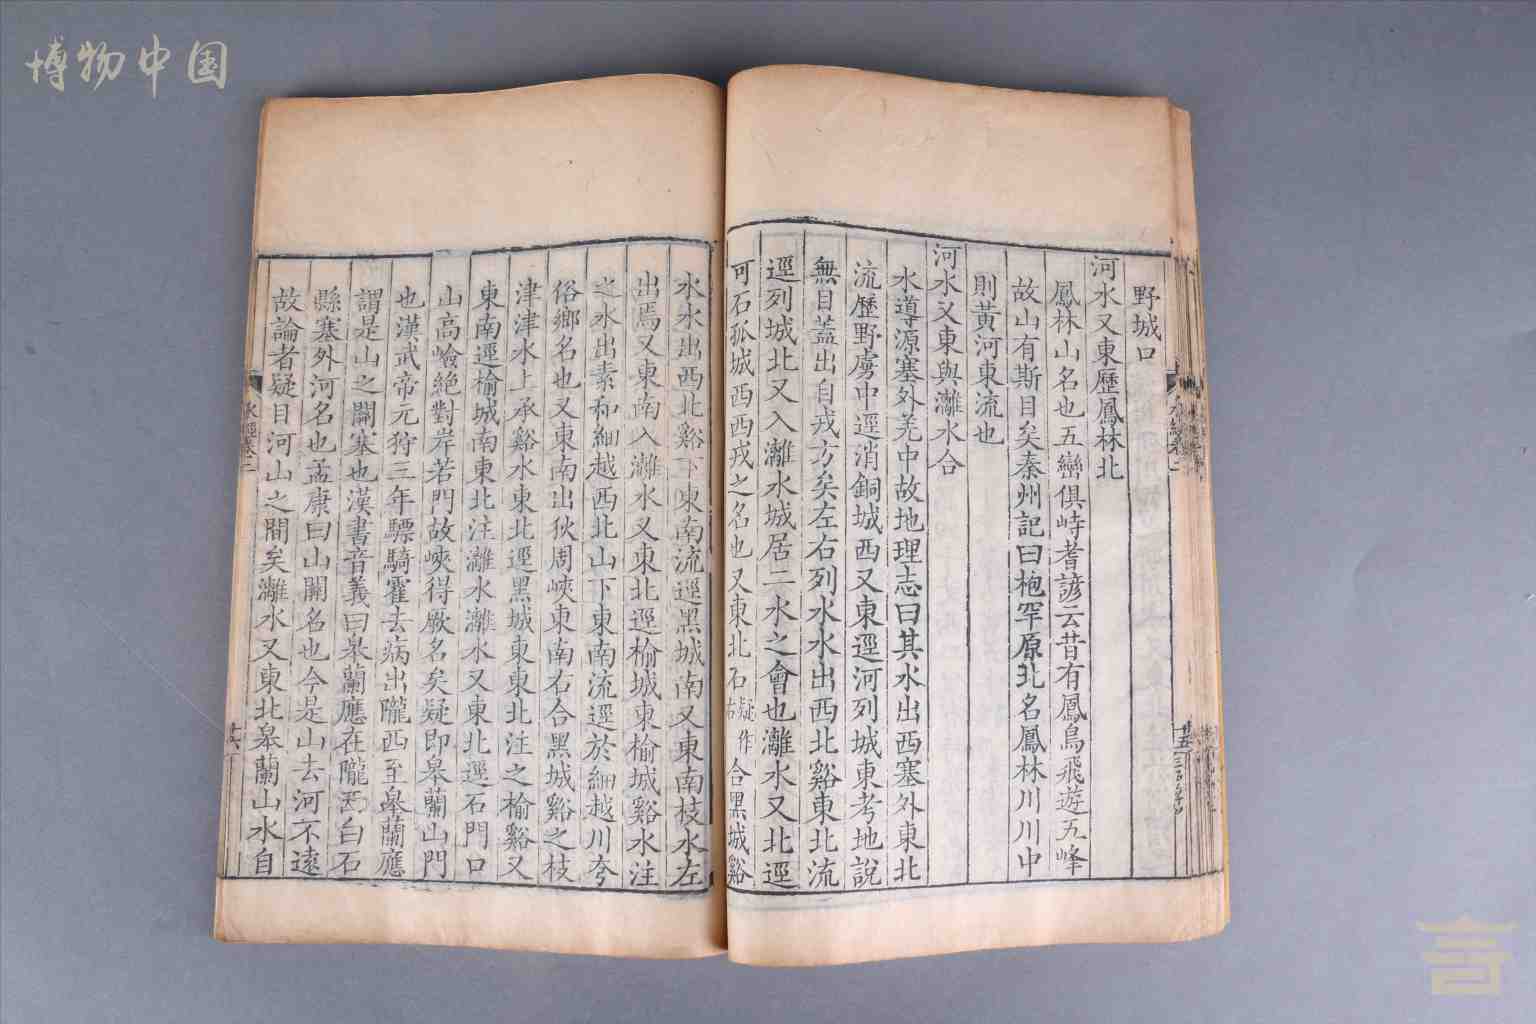 博物中国
野城口
河水又東歷鳳林北
鳳林山名也五巒俱峙耆諺云昔有鳳鳥飛遊五峰
故山有斯目矣秦州記曰枹罕原北名鳳林川川中
則黃河東流也
河水又東與灕水合
水導源塞外羌中故地理志曰其水出西塞外東北
流歷野虜中逕消銅城西又東逕河列城東考地說
無目蓋出自戎方矣左右列水水出西北谿東北流
逕列城北又入灕水城居二水之會也灕水又北逕
可石孤城西西戎之名也又東北石疑作右合黑城谿
水水出西北谿下東南流逕黑城南又東南枝水左
出焉又東南入灕水又東北逕榆城東榆城谿水注
之水出素和細越西北山下東南流逕於細越川夸
俗鄉名也又東南出狄周峽東南右合黑城谿之枝
津津水上承谿水東北逕黑城東東北注之榆谿又
東南逕榆城南東北注灕水灕水又東北逕石門口
山高嶮絕對岸若門故峽得厥名矣疑即皋蘭山門
也漢武帝元狩三年驃騎霍去病出隴西至皋蘭應
謂是山之關塞也漢書音義曰皋蘭應在隴西白石
縣塞外河名也孟康曰山關名也今是山去河不遠
故論者疑目河山之間矣灕水又東北皋蘭山水自
水經卷二
廿六
廿五